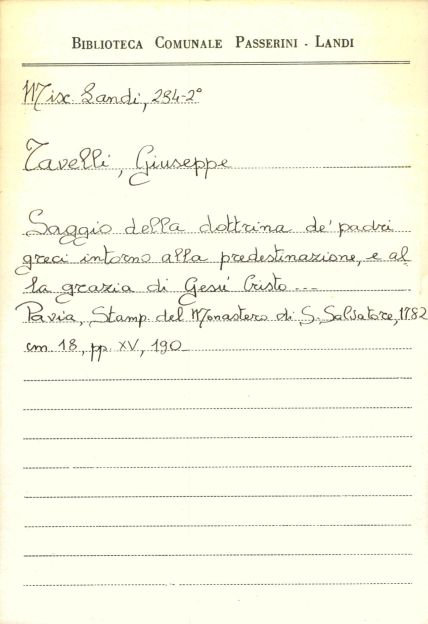 BIBLIOTECA COMUNALE PASSERINI - LANDI
Misc. Landi, 294-2°
Tavelli, Giuseppe
Saggio della dottrina de' padri
greci intorno alla predestinazione, e al
la grazia di Gesú Cristo...
Pavia, Stamp. del Monastero di S. Salvatore, 1782
cm 18, pp. XV, 190